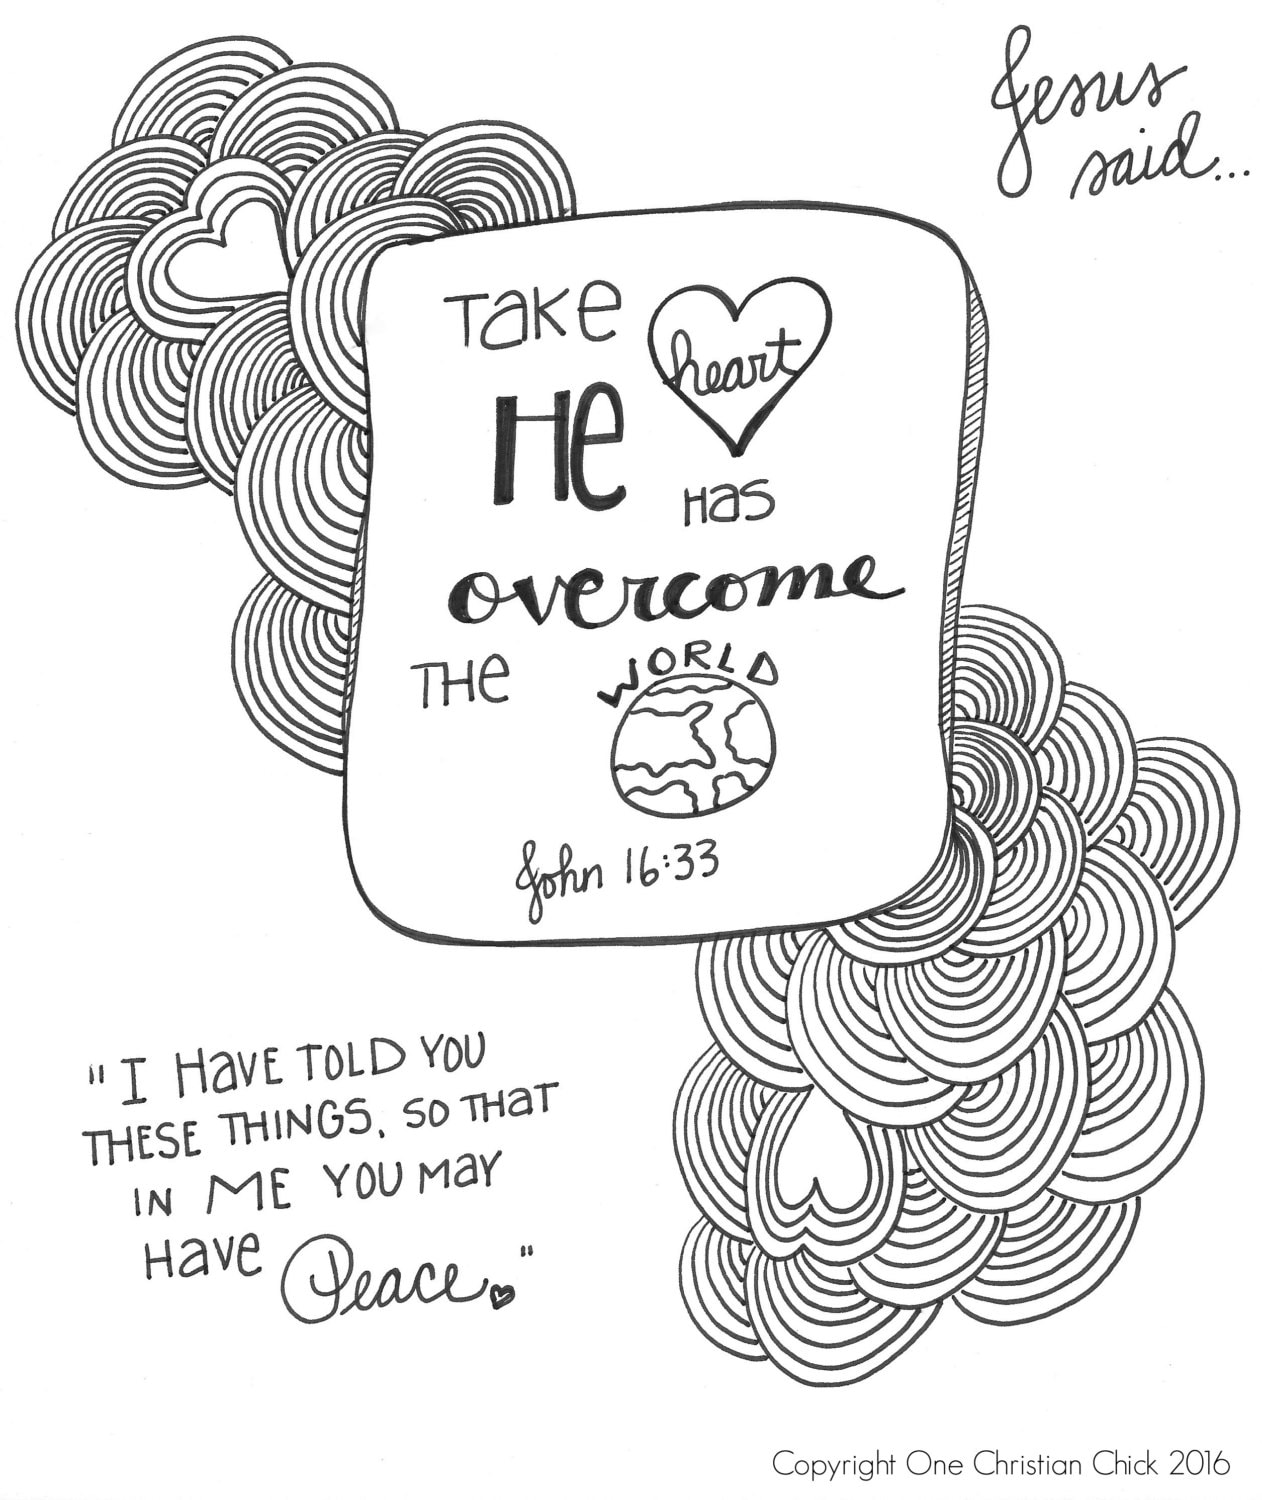 Jesus
said...
Take heart
He Has
overcome
THe WORLD
John 16:33
"I HavE TOLD YOU
THESE THINGS, SO THaT
IN ME YOU May
Have Peace."
Copyright One Christian Chick 2016